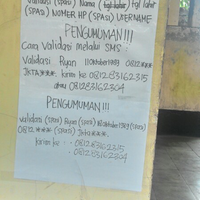 validasi (spasi) Nama (tgl lahir
(SPASI) NOMER HP (SPASI) USERNAME
PENGUMUMAN !!!
Cara Validasi melalui SMS :
Validasi Ryan 11Oktober1989 0812***
JKTA*** kirim ke 081283162315
atau 081283162304
PENGUMUMAN !!!
validasi (spasi) Ryan (spasi) (spasi)
0812 **** (SPASI) Jkta***.
kirim ke : - 081283162315
- 081283162304